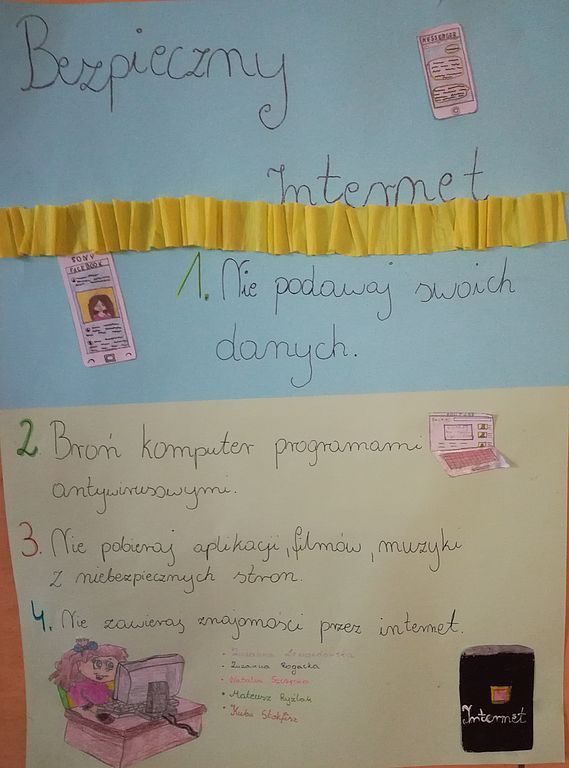 Bezpieczny
MESSENGER
Internet
SONY
FACEBOOK
1. Nie podawaj swoich
danych.
2. Broń komputer programami
antywirusowymi.
3. Nie pobieraj aplikacji, filmów, muzyki
z niebezpiecznych stron.
4. Nie zawieraj znajomości przez internet.
- Zuzanna
- Zuzanna Rogacka
- Natalia
- Mateusz
- Kuba Stokfisz
Internet